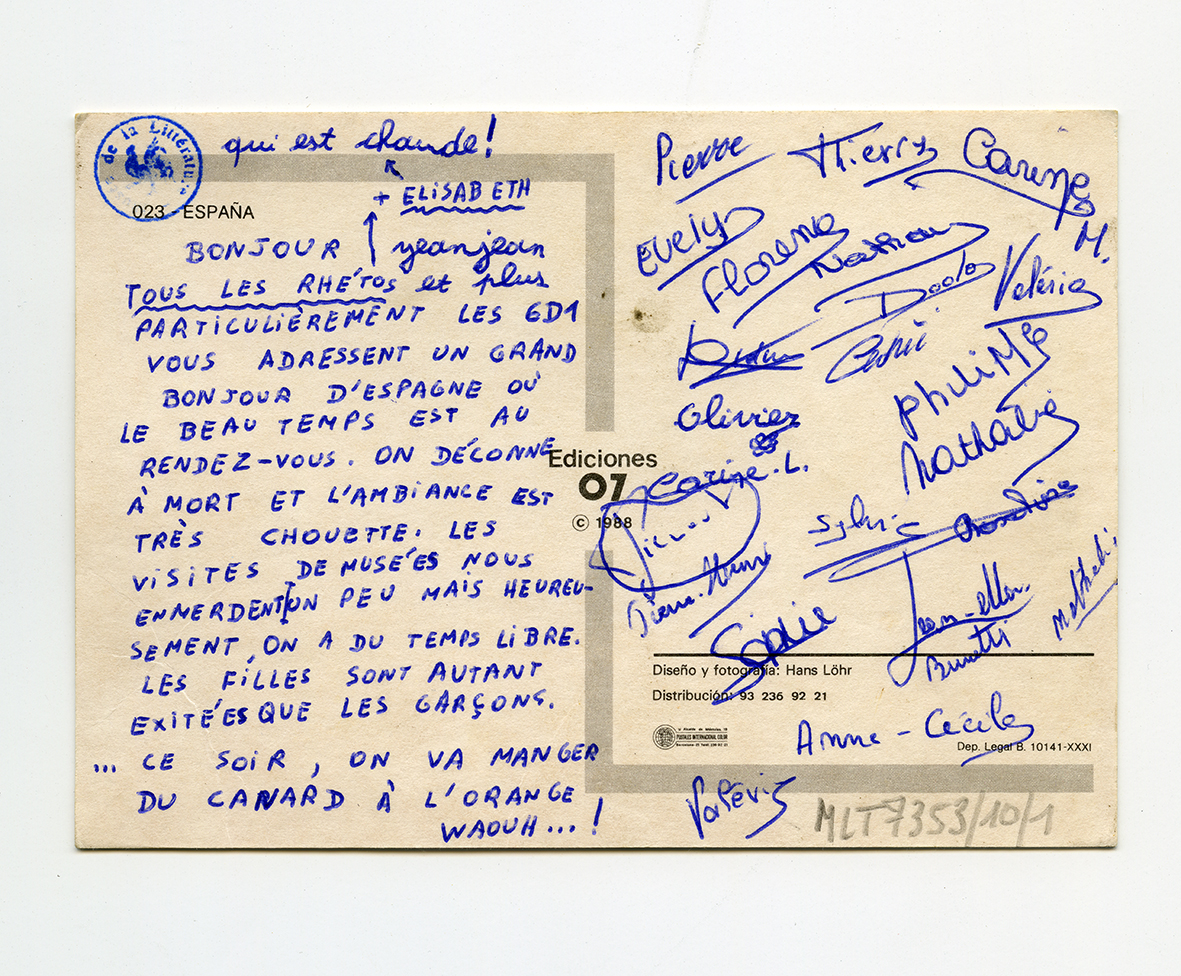 de la Littérature
qui est chaude!
+ ELISABETH
023 - ESPAÑA
BONJOUR yeanjean
TOUS LES RHÉTOS et plus
PARTICULIÈREMENT LES 6D1
VOUS ADRESSENT UN GRAND
BONJOUR D'ESPAGNE OÙ
LE BEAU TEMPS EST AU
RENDEZ-VOUS. ON DÉCONNE
À MORT ET L'AMBIANCE EST
TRÈS CHOUETTE. LES
VISITES DE MUSÉES NOUS
ENMERDENT UN PEU MAIS HEUREU-
SEMENT, ON A DU TEMPS LIBRE.
LES FILLES SONT AUTANT
EXITÉES QUE LES GARÇONS.
... CE SOIR, ON VA MANGER
DU CANARD À L'ORANGE
WAOUH...!
Ediciones
07
© 1988
Pierre Thierry Carine M.
Evelyn
Florence Nathan
Valérie
Cédric
Philippe
Olivier
Nathalie
Carine. L.
Sylvie
Pierre-Henri
Sophie
Jean-Allan
Brunetti
Diseño y fotografía: Hans Löhr
Distribución: 93 236 92 21
POSTALES INTERNACIONAL COLOR
Anne-Cécile
Dep. Legal B. 10141-XXXI
Valérie
MLT7353/10/1